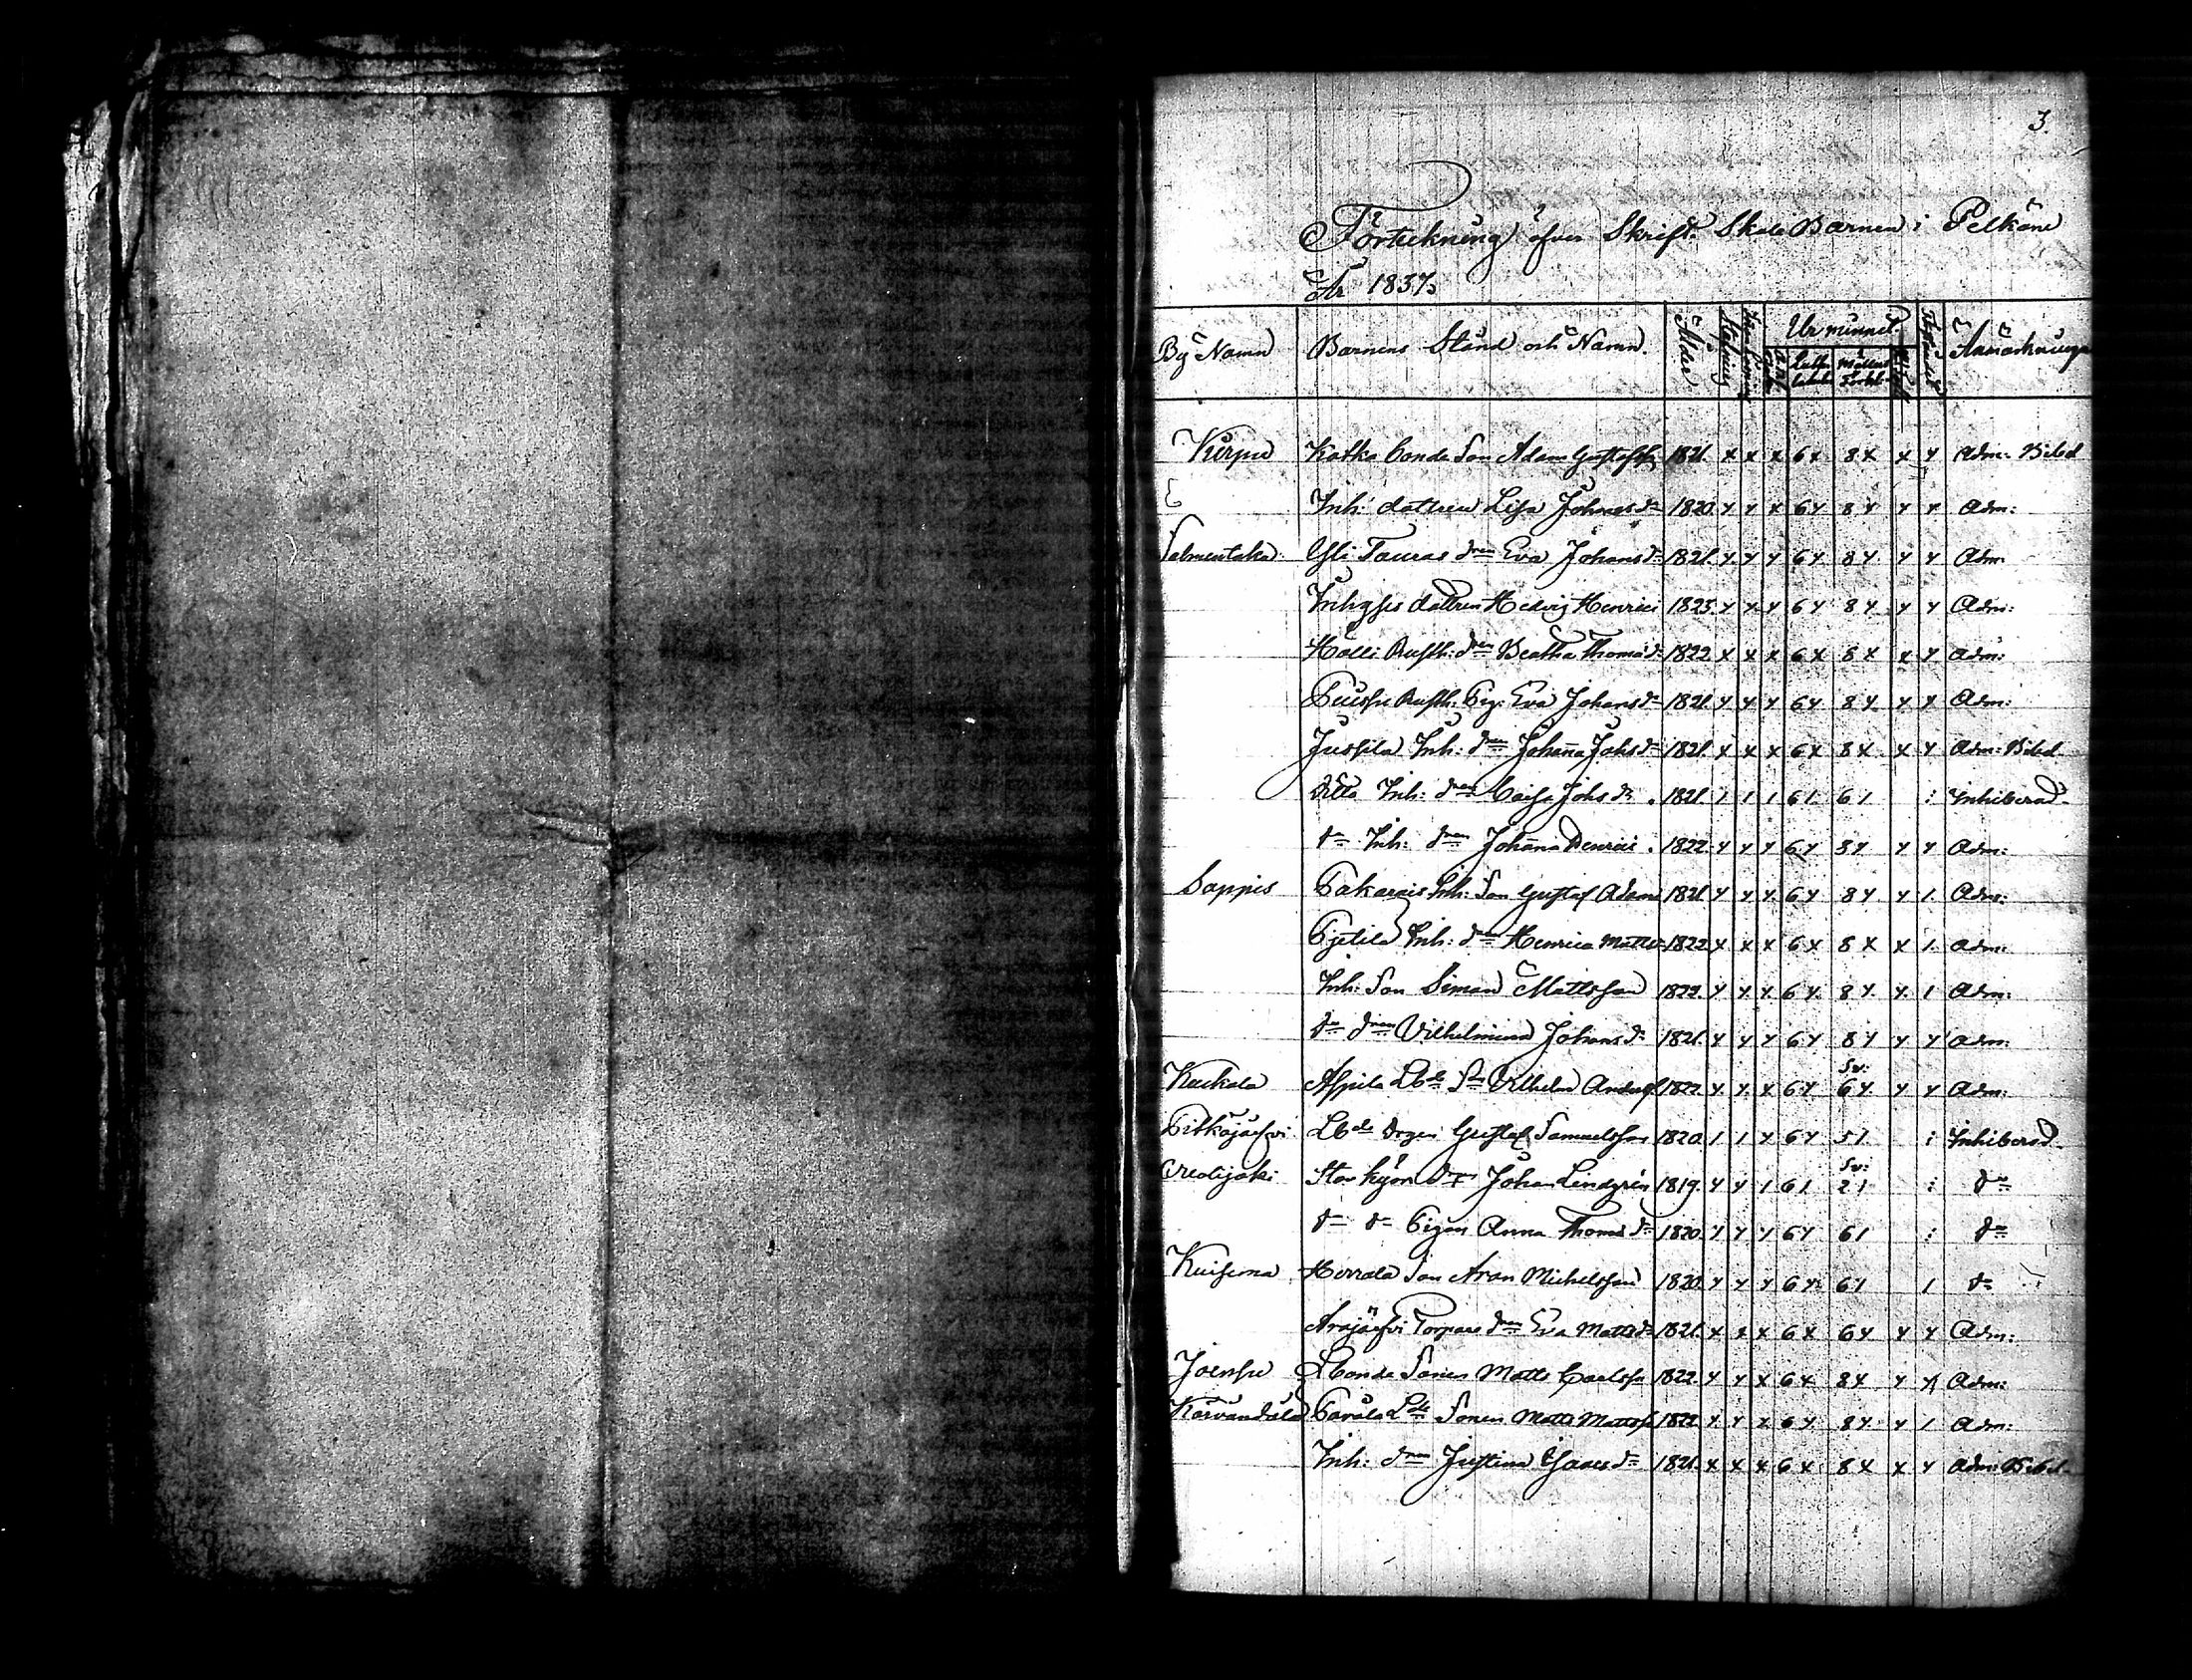 3.
Förteckning öfver Skrift Skole Barnen i Pelkäne
År 1837.
By Namn Barnens Stånd och Namn. Ålder Ur minnet Anmärkninga
Kirpu Kotka bonde Son Adam Gustafss 1821. x x x 6 x 8 x x y Adm: Bibel
Inh: dottren Lisa Johansdr 1820. y y x 6 y 8 y y x Adm:
Salmentaka Yli Tauras dren Eva Johansdr 1821. y y y 6 y. 8 y. y y Adm
Inhyses dottren Hedvig Henrici 1823. y y. y 6 y 8 y y y Adm:
Hälli Rusth: dren Beatha Thomædr 1822 x x x 6 x 8 x x y Adm:
Rusth. Pig. Eva Johansdr 1821. y y y 6 y 8 y y y Adm:
Jussila Inh: dren Johanna Johsdr 1821. x x x 6 x 8 x x y Adm: Bibel.
Ditto Inh: dren Caisa Johs dr. 1821. 1 1 1 6 1. 6 1 : Inhiberad.
do Inh: dren Johanna Henrici. 1822. y y y 6 y 8 y y y Adm:
Sappis Pakarais Inh: Son Gustaf Adams 1821 y y y. 6 y 8 y y 1. Adm:
Pjetilä Inh: dren Henrica Matts 1822. x x x 6 x 8 x x 1. Adm:
Inh: Son Simon Mattsson 1822. y y y. 6 y. 8 y. y. 1 Adm:
do dren Vilhelmina Johans dr 1821. y y y 6 y 8 y y y Adm:
Sv:
Kuckola Appila Lbde Sn Vilhelm Andersson 1822. y y. x 6 y 6 y. y y Adm:
Pitkäjärfvi Lbde Dregen Gustaf Samuelsson 1820. 1 1 y 6 y 5 1 : Inhiberad.
Sv:
Stor Kyrö Johan Lindgren 1819. y y 1 6 1 2 1 : do
do do Pigan Anna Thomædr 1820. y y y 6 y 6 1 : do
Kuisema Herrala Son Aron Michelsson 1820. y y y 6 y. 6 1 1 do
Arajärfvi Torpare dren Eva Mattsdr 1821. x x x 6 x 6 y. y y Adm:
Joensu Lbonde Sonen Matts Carlsson 1822. y y x 6 x 8 x y 1 Adm:
Lbde Sonen Matts Mattss 1822. y y x 6 y 8 y. y 1 Adm:
Inh: dren Justina Isaacsdr 1821. x x x 6 x 8 x x y Adm: Bibel.